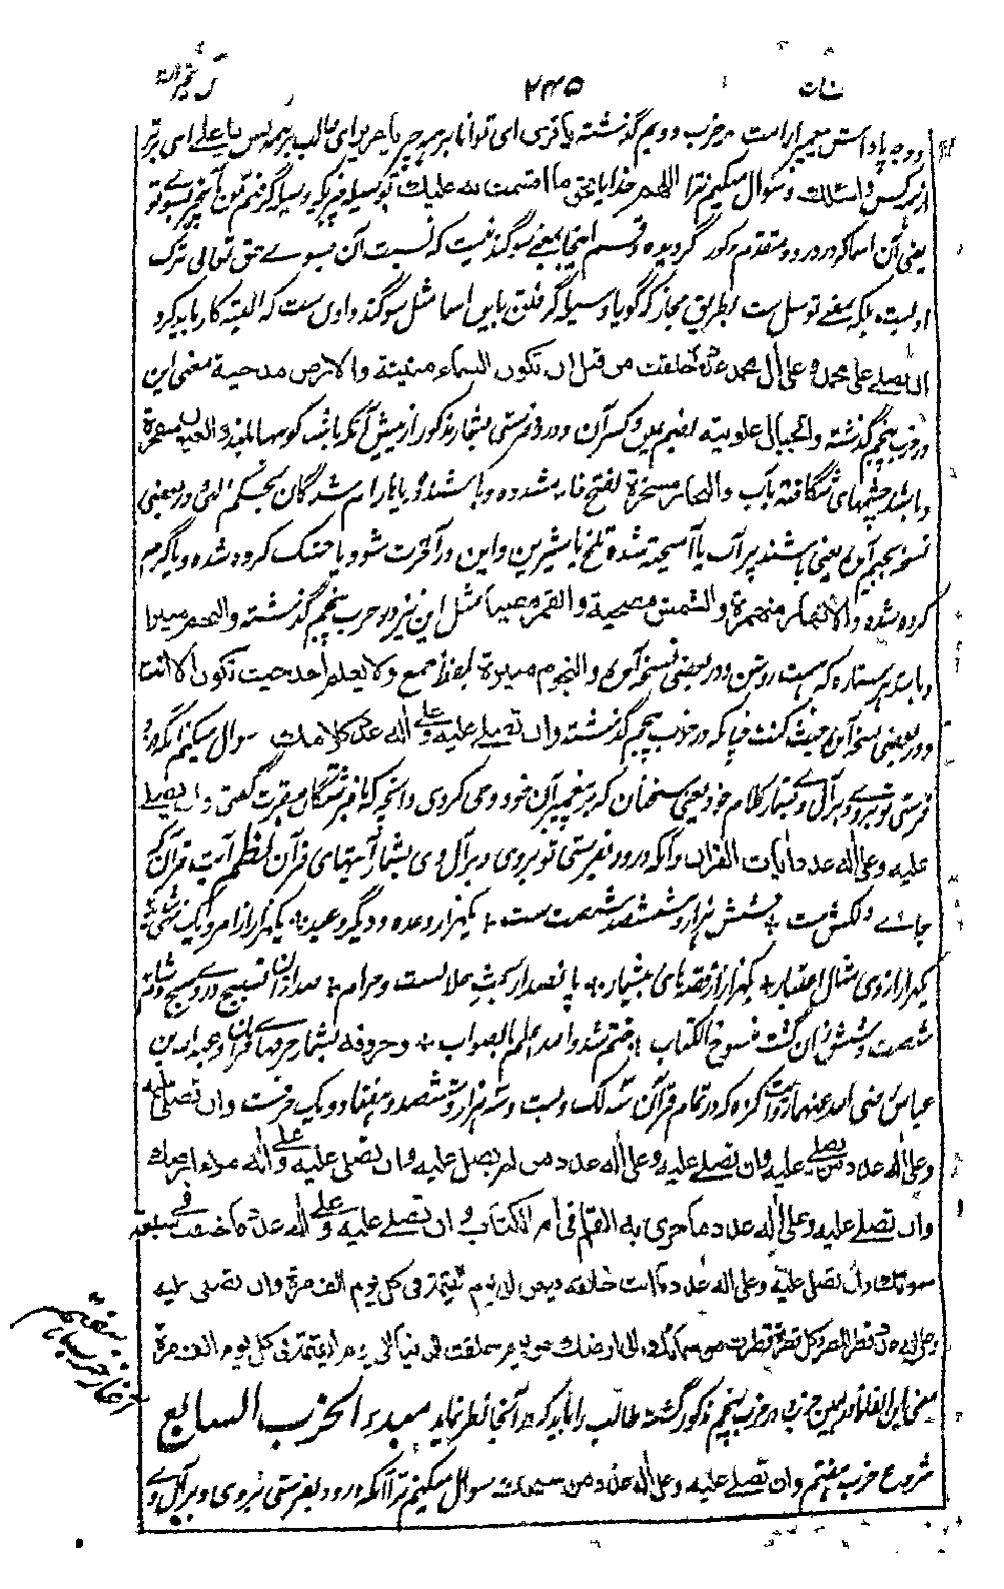 ۲۴۵
ووجه پاداش پیمبرانست در حزب دویم گذشته یا قوی ای توانا بر هر چیز یا عزیز ای غالب بر همه کس یا علی ای برتر
از هر کس و اسئلك و سوال میکنم ترا اللهم خدایا بحق ما اقسمت به علیك
یعنی آن اسما که در درود متقدم مذکور گردیده و قسم اینجا بمعنی سوگند نیست که نسبت آن بسوے حق تعالی ترک
اولیست بلکه بمعنی توسل ست بطریق مجاز که گویا وسیله گرفتن باین اسما مثل سوگند دادن ست که البته کار باید کرد
ان تصلے علی محمد و علی ال محمد عدد ما خلقت من قبل ان تکون السماء مبنیة والارض مدحیة معنی این
در حزب پنجم گذشته والجبال علویة بضم عین و کسر آن و درود فرستی بشمار مذکور از پیش آنکه باشند کوهها بلند والعیون منفجرة
و باشند چشمهای شگافته بآب والبحار مسخرة بفتح خاء مشدده و باشند دریاها رام شدگان بحکم الهی و در بعضی
نسخه بجیم آمده یعنی باشند پر آب یا آمیخته شده تلخ با شیرین و این در آخرت شود یا خشک کرده شده و یا گرم
کرده شده والانهار منهمرة والشمس مضحیة والقمر مضیا مثل این نیز در حزب پنجم گذشته والنجم منیرا
و باشد هر ستاره که هست روشن و در بعضی نسخه آمده والنجوم منیرة بلفظ جمع ولا یعلم احد حیث تکون الا انت
و در بعضی نسخه آمده حیث کنت چنانکه در حزب پنجم گذشته وان تصلے علیه و علی اله عدد کلامك سوال میکنم آنکه درود
فرستی تو بروے و بر آل وے بشمار کلام خود یعنی سخنان که بر پیغمبران خود وحی کردی و آنچه که با فرشتگان مقرب گفتی وان تصلے
علیه و علی اله عدد ایات القران و آنکه درود بفرستی تو بر وی و بر آل وی بشمار آیتهای قرآن نظم آیت قرآن که
جاے دلکش ست + شش هزار و ششصد و شصت ست + یکهزار وعده و دیگر وعید + یکهزار از امر و یک نهی شدید
یکهزار از وی مثال اعتبار + یکهزار از قصه‌های بیشمار + پانصد از بحث حلالست و حرام + صد از آن تسبیح در وے صبح و شام
شصت و شش زان گشت منسوخ الکتاب + ختم شد والله اعلم بالصواب + و حروفه بشمار حرفهاے قرآن و عبدالله بن
عباس رضی الله عنهما روایت کرده که در تمام قرآن سه لک و بست و سه هزار و ششصد و هفتاد و یک حرفست وان تصلی علیه
و علی اله عدد من یصلی علیه وان تصلے علیه و علی اله عدد من لم یصل علیه وان تصلی علیه و علی اله ملء ارضك
وان تصلے علیه و علی اله عدد ما جری به القلم فی ام الکتاب وان تصلے علیه و علی اله عدد ما خلقت فی سبع
سموتك وان تصلی علیه و علی اله عدد ما انت خالقه فیهن الی یوم القیمة فی کل یوم الف مرة وان تصلی علیه
و علی اله عدد قطر المطر و کل قطرة قطرت من سمائك الی ارضك من یوم خلقت الدنیا الی یوم القیمة فی کل یوم الف مرة
معنی این الفاظ در همین حزب و در حزب پنجم مذکور گشته طالب را باید که در آنجا نظر نماید مبدء الحزب السابع
شروع حزب هفتم وان تصلے علیه و علی اله عدد من سبحك سوال میکنم ترا آنکه درود بفرستی بر وی و بر آل وے
آغاز حزب هفتم